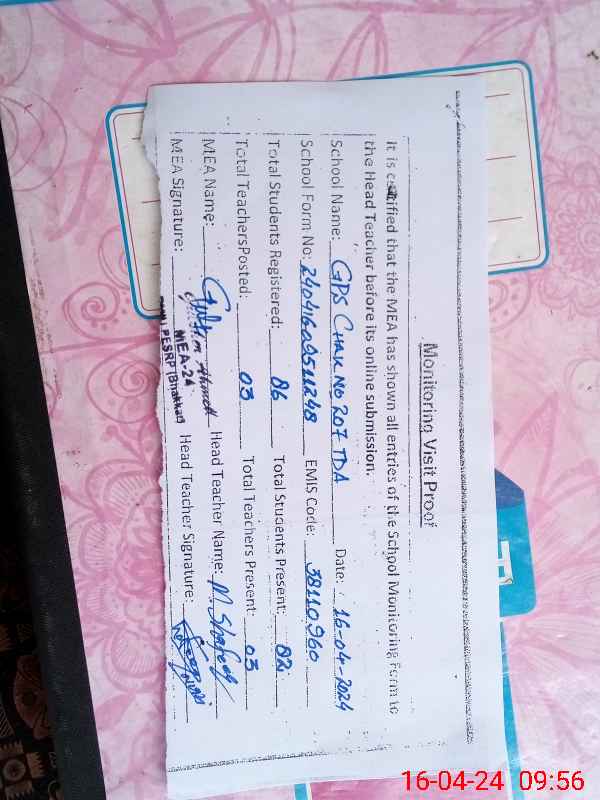 Monitoring Visit Proof
It is certified that the MEA has shown all entries of the School Monitoring Form to
the Head Teacher before its online submission.
School Name: GPS Chak No 207 TDA Date: 16-04-2024
School Form No: EMIS Code: 38110960
Total Students Registered: 86 Total Students Present: 82
Total TeachersPosted: 03 Total Teachers Present: 03
MEA Name: Ahmed Head Teacher Name: M. Shafeeq
MEA Signature: Head Teacher Signature:
MEA-24
PESRP (Bhakkar)
16-04-24 09:56